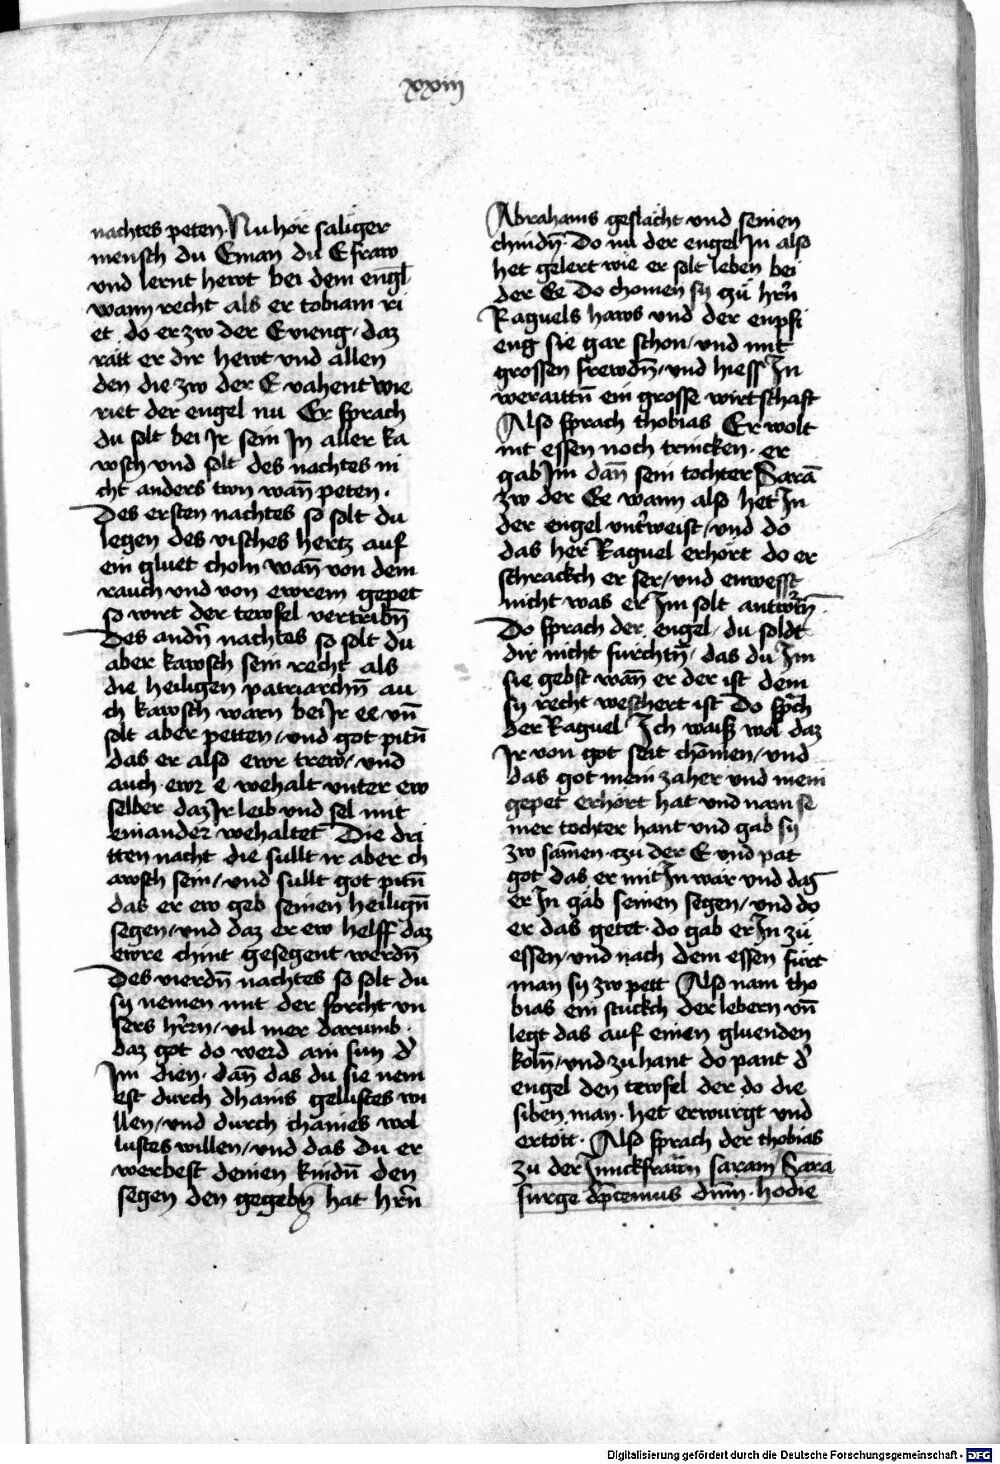 xxiij
nachtes peten. Nu hör säliger
mensch du Eman du Efraw
vnd lernt hewt bei dem engl̄
wann recht als er tobiam ri
et do er zw der E vieng / daz
rätt er dir hewt vnd allen
den die zw der E vahent wie
riet der engel nu Er sprach
du solt bei Ir sein In aller ka
wsch vnd solt des nachtes ni
cht anders twn wan̄ peten .
Des ersten nachtes so solt du
legen des visches hertz auf
ein gluet choln wan̄ von dem
rauch vnd von ewrem gepet
so wirt der tewfel vertribn̄
Des andn̄ nachtes so solt du
aber kawsch sein recht als
die heiligen patriarchn̄ au
ch kawsch warn bei Ir ee vn̄
solt aber petten / vnd got pitn̄
das er also ewr trew / vnd
auch ewr e wehalt vnter ew
selber daz Ir leib vnd sel mit
einander wehaltet Die dri
tten nacht die sullt ir aber ch
awsch sein / vnd sullt got pitn̄
das er ew geb seinen heilign̄
segen / vnd daz er ew helff daz
ewre chint gesegent werdn̄
Des vierdn̄ nachtes so solt du
sy nemen mit der forcht vn
sers hr̄rn / vil mer darumb .
daz got do werd ain sun d'
Im dien . dan̄ das du sie nem
est durch dhains gelustes wi
llen / vnd durch chaines wol
lustes willen / vnd das du er
werbest deinen kindn̄ den
segen den gegebn hat hr̄n
Abrahams geslächt vnd seinen
chindn̄ . Do nu der engel In also
het gelert wie er solt leben bei
der Ee Do chomen sy czü hr̄n
Raguels haws vnd der enpfi
eng sie gar schon / vnd mit
grossen frewdn̄ / vnd hiess In
weraittn̄ ein grosse wirtschaft
Also sprach thobias Er wolt
nit essen noch trincken . er
gab Im dan̄ sein tochter Sarā
zw der Ee wann also het In
der engel vnt'weist / vnd do
das her Raguel erhört do er
schrackch er ser / vnd enwesst
nicht was er Im solt antw̄tn̄ .
Do sprach der engel / du soldt
dir nicht fürchtn̄ / das du Im
sie gebst wan̄ er der ist dem
sy recht weschert ist Do sp̄ch
der Raguel Ich waiß wol daz
Ir von got seit chōmen / vnd
das got mein zäher vnd mein
gepet erhört hat vnd nam se
iner tochter hant vnd gab sy
zw sam̄en . czu der E vnd pat
got das er mit In wär vnd das
er In gäb seinen segen / vnd do
er das getet . do gab er In zü
essen / vnd nach dem essen fürt
man sy zw pett Also nam tho
bias ein stuckch der lebern vn̄
legt das auf einen gluenden
koln̄ / vnd zu hant do pant d'
engel den tewfel der do die
siben man . het erwürgt vnd
ertött . Also sprach der thobias
zu der Junckfrawn saram Sara
surge dep̄cemus dn̄m . hodie
Digitalisierung gefördert durch die Deutsche Forschungsgemeinschaft - DFG